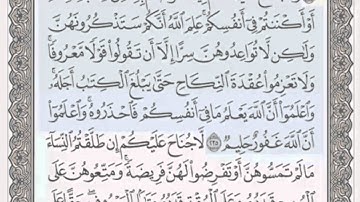 أَوْ أَكْنَنتُمْ فِىٓ أَنفُسِكُمْ عَلِمَ ٱللَّهُ أَنَّكُمْ سَتَذْكُرُونَهُنَّ
وَلَـٰكِن لَّا تُوَاعِدُوهُنَّ سِرًّا إِلَّآ أَن تَقُولُوا۟ قَوْلًا مَّعْرُوفًا ۚ
وَلَا تَعْزِمُوا۟ عُقْدَةَ ٱلنِّكَاحِ حَتَّىٰ يَبْلُغَ ٱلْكِتَـٰبُ أَجَلَهُۥ ۚ
وَٱعْلَمُوٓا۟ أَنَّ ٱللَّهَ يَعْلَمُ مَا فِىٓ أَنفُسِكُمْ فَٱحْذَرُوهُ ۚ وَٱعْلَمُوٓا۟
أَنَّ ٱللَّهَ غَفُورٌ حَلِيمٌ ٢٣٥ لَّا جُنَاحَ عَلَيْكُمْ إِن طَلَّقْتُمُ ٱلنِّسَآءَ
مَا لَمْ تَمَسُّوهُنَّ أَوْ تَفْرِضُوا۟ لَهُنَّ فَرِيضَةً ۚ وَمَتِّعُوهُنَّ عَلَى